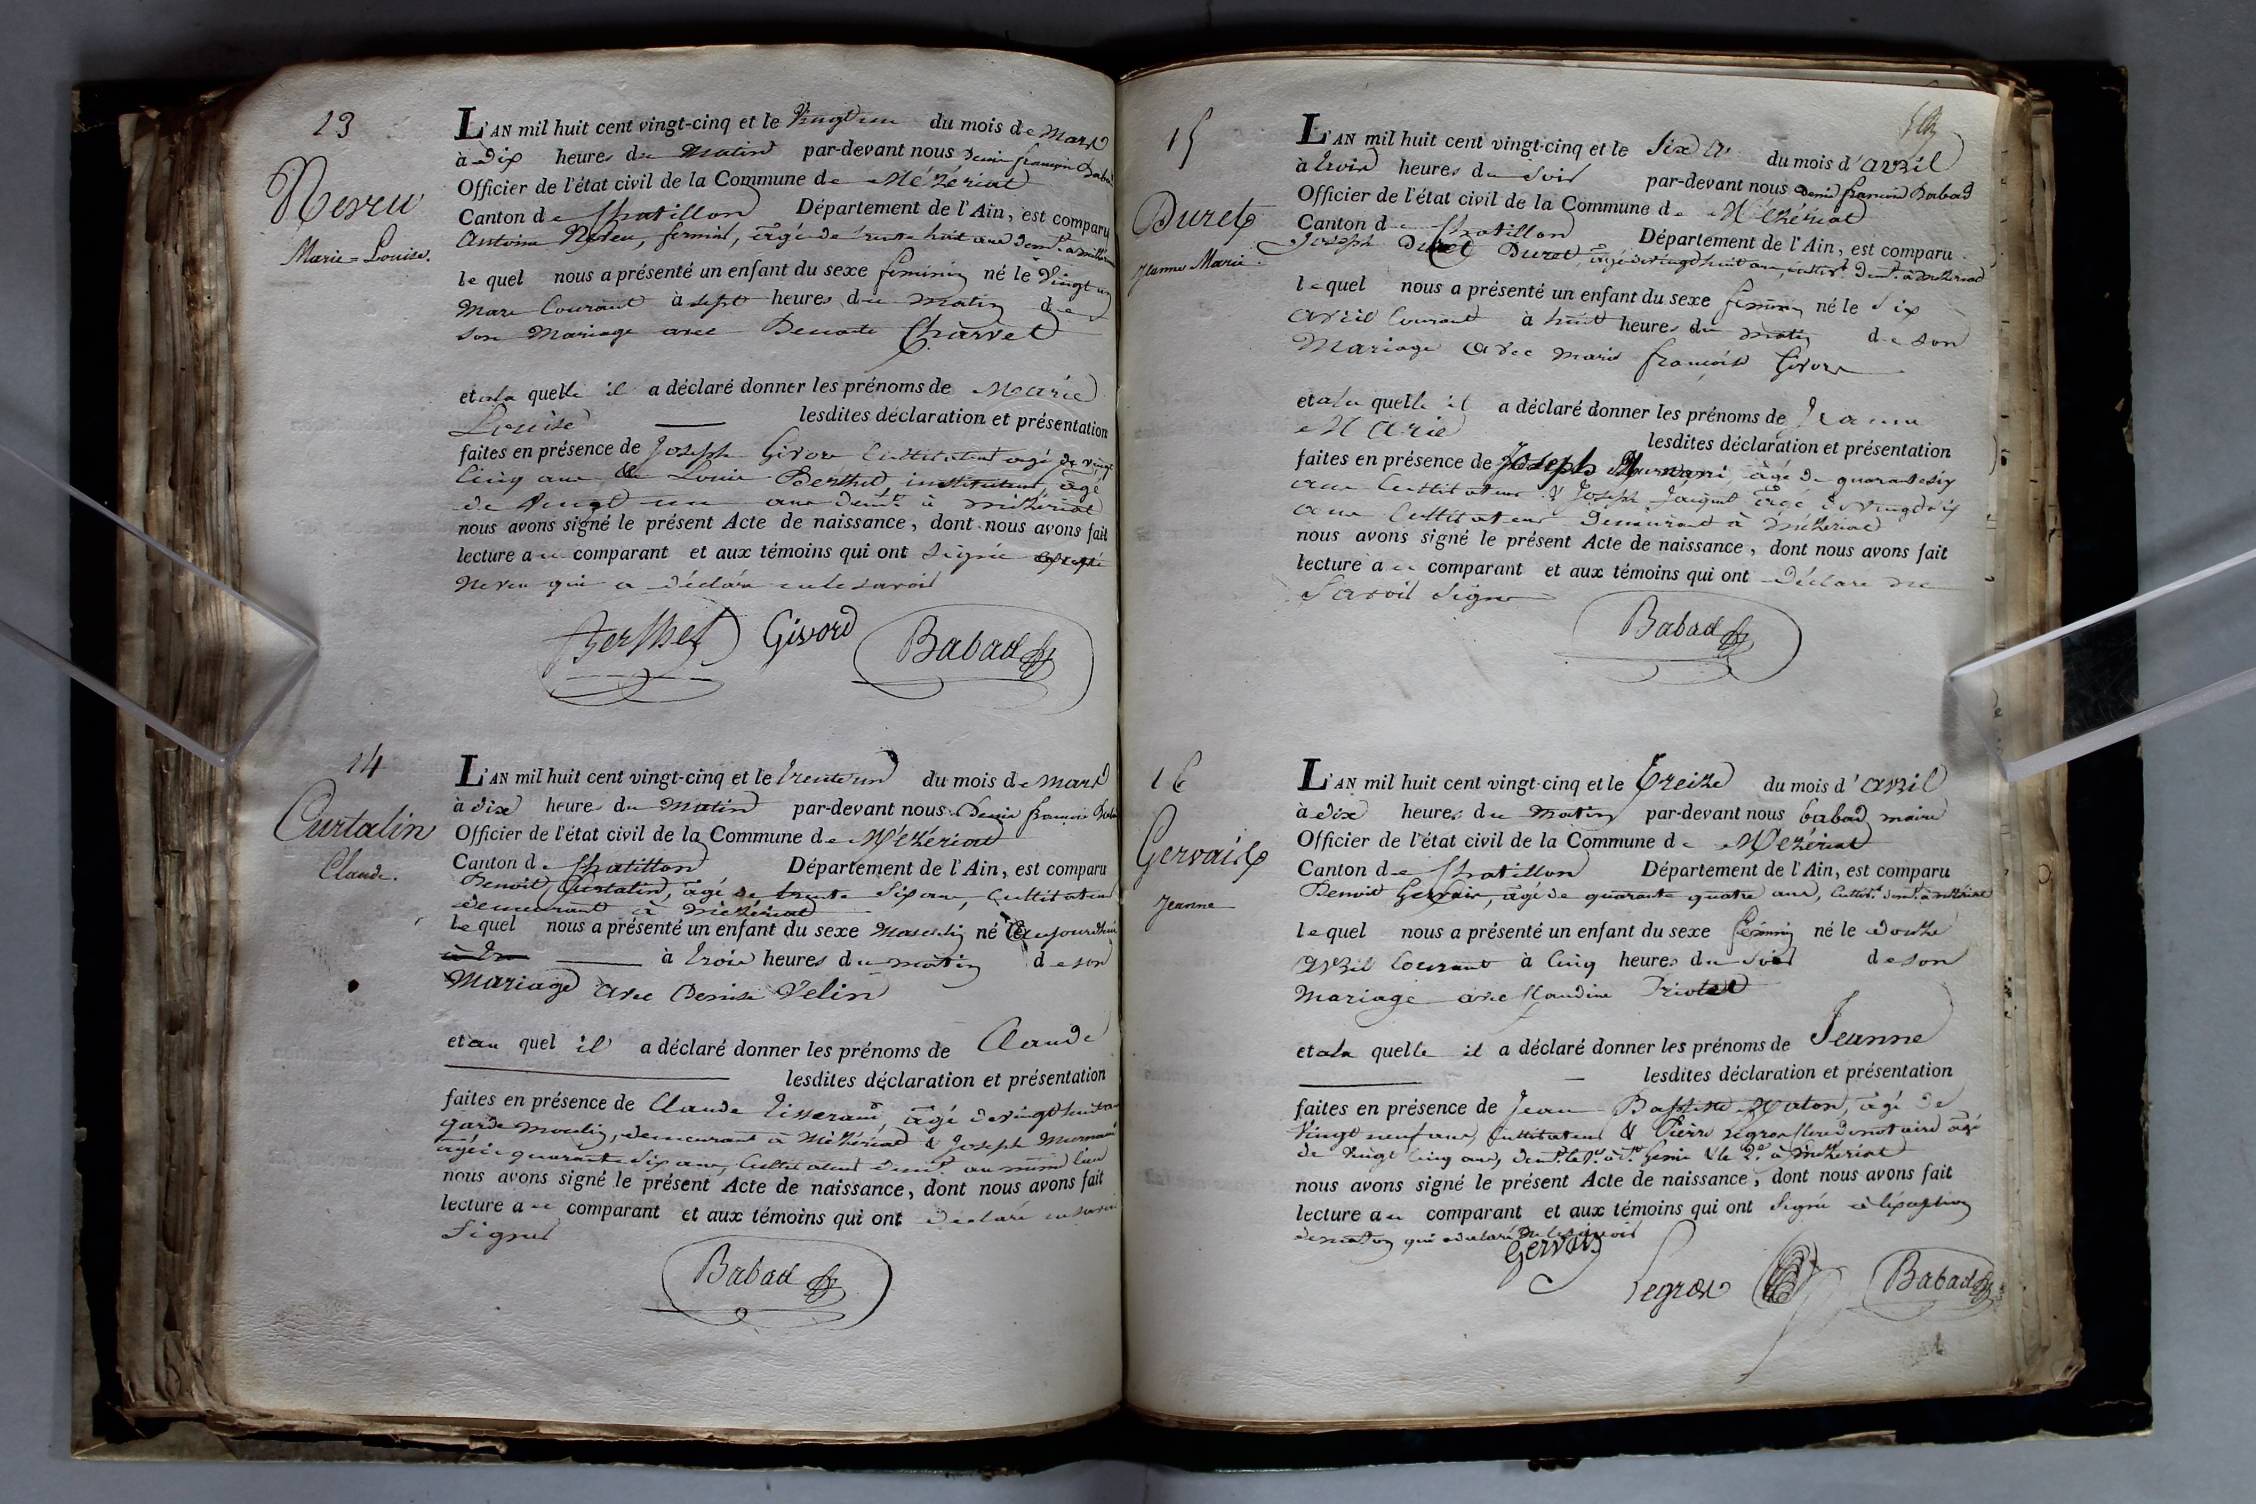 13
Neveu
Marie-Louise.
L'AN mil huit cent vingt-cinq et le Vingt un du mois de Mars
à Dix heures du Matin par-devant nous Denis françois Babad
Officier de l'état civil de la Commune de Mézériat
Canton de Chatillon Département de l'Ain, est comparu
Antoine Neveu, fermier, âgé de trente huit ans demt. à
le quel nous a présenté un enfant du sexe feminin né le Vingt un
Mars Courant à sept heures du matin de
son Mariage avec Benoite Charvet
et à la quelle il a déclaré donner les prénoms de Marie
Louise lesdites déclaration et présentation
faites en présence de Joseph Givord Cultivateur agé de vingt
Cinq ans & Louis Berthet instituteur, âgé
de Vingt un ans demt. à mézériat
nous avons signé le présent Acte de naissance, dont nous avons fait
lecture au comparant et aux témoins qui ont signé excepté
Neveu qui a déclaré ne le savoir
Berthet Givord Babad
14
Curtalin
Claude.
L'AN mil huit cent vingt-cinq et le trente un du mois de mars
à dix heures du Matin par-devant nous Denis françois Babad
Officier de l'état civil de la Commune de Mézériat
Canton de Chatillon Département de l'Ain, est comparu
Benoit Curtalin, âgé de trente six ans, Cultivateur
demeurant à Mézériat
le quel nous a présenté un enfant du sexe Masculin né aujourdhui
à trois heures du matin de son
Mariage avec Denise Velin
et au quel il a déclaré donner les prénoms de Claude
lesdites déclaration et présentation
faites en présence de Claude Tisserand, âgé de vingt huit ans
garde moulin, demeurant à Mézériat & Joseph Murnand
âgé de quarante six ans, Cultivateur demt. au même lieu
nous avons signé le présent Acte de naissance, dont nous avons fait
lecture au comparant et aux témoins qui ont déclaré ne savoir
signer
Babad
15
Duret
Jeanne Marie.
L'AN mil huit cent vingt-cinq et le Six du mois d'avril
à trois heures du soir par-devant nous Denis françois Babad
Officier de l'état civil de la Commune de Mézériat
Canton de Chatillon Département de l'Ain, est comparu
Joseph Duret Duret, âgé de vingt huit ans cultivr. demt. à Mézériat
le quel nous a présenté un enfant du sexe féminin né le Six
avril Courant à huit heures du matin de son
Mariage avec marie françoise Givord
et à la quelle il a déclaré donner les prénoms de Jeanne
Marie lesdites déclaration et présentation
faites en présence de Joseph Murnand, âgé de quarante six
ans Cultivateur & Joseph Jacquet âgé de vingt six
ans Cultivateur demeurant à Mézériat
nous avons signé le présent Acte de naissance, dont nous avons fait
lecture au comparant et aux témoins qui ont déclaré ne
Savoir signer
Babad
16
Gervais
Jeanne
L'AN mil huit cent vingt-cinq et le Treize du mois d'avril
à dix heures du matin par-devant nous babad maire
Officier de l'état civil de la Commune de Mézériat
Canton de Chatillon Département de l'Ain, est comparu
Benoit Gervais, âgé de quarante quatre ans, Cultivr. demt. à mézériat
le quel nous a présenté un enfant du sexe féminin né le douze
avril Courant à Cinq heures du soir de son
mariage avec Claudine
et à la quelle il a déclaré donner les prénoms de Jeanne
lesdites déclaration et présentation
faites en présence de Jean Baptiste âgé de
Vingt neuf ans, Cultivateur & Pierre Legros Clerc de notaire âgé
de vingt Cinq ans, demt. le 1er. à St. Genis & le 2d. à Mézériat
nous avons signé le présent Acte de naissance, dont nous avons fait
lecture au comparant et aux témoins qui ont signé à l'exception
qui a déclaré ne le savoir
Gervais
Legros Babad